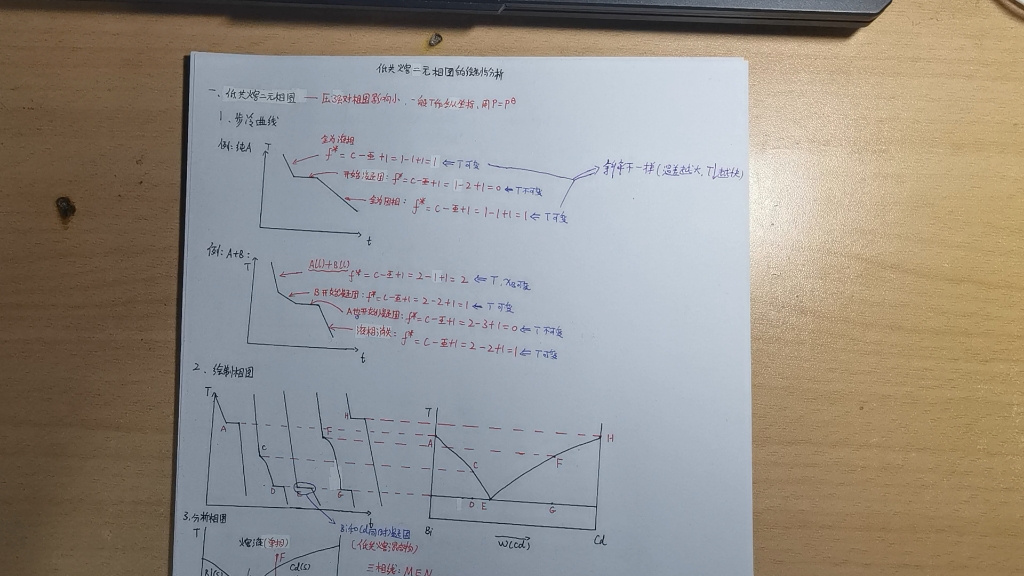 低共熔二元相图的绘制与分析
一、低共熔二元相图 —— 压强对相图影响小,一般T作纵坐标,用P=P^θ
1. 步冷曲线
例:纯A
T
全为液相
f* = C-Φ+1 = 1-1+1=1 ⇐ T可变
开始凝固: f* = C-Φ+1 = 1-2+1=0 ⇐ T不可变
全为固相: f* = C-Φ+1 = 1-1+1=1 ⇐ T可变
斜率不一样(温差越大,T↓越快)
t
例: A+B:
T
A(l)+B(l)
f* = C-Φ+1 = 2-1+1=2 ⇐ T、x_B可变
B开始凝固: f* = C-Φ+1 = 2-2+1=1 ⇐ T可变
A也开始凝固: f* = C-Φ+1 = 2-3+1=0 ⇐ T不可变
液相消失: f* = C-Φ+1 = 2-2+1=1 ⇐ T可变
t
2. 绘制相图
T
A
C
D
E
F
G
H
T
A
C
D E
F
G
H
Bi
w(Cd)
Cd
Bi和Cd同时凝固
(低共熔混合物)
3. 分析相图
T
熔液(单相)
F
Cd(s)
三相线: MEN